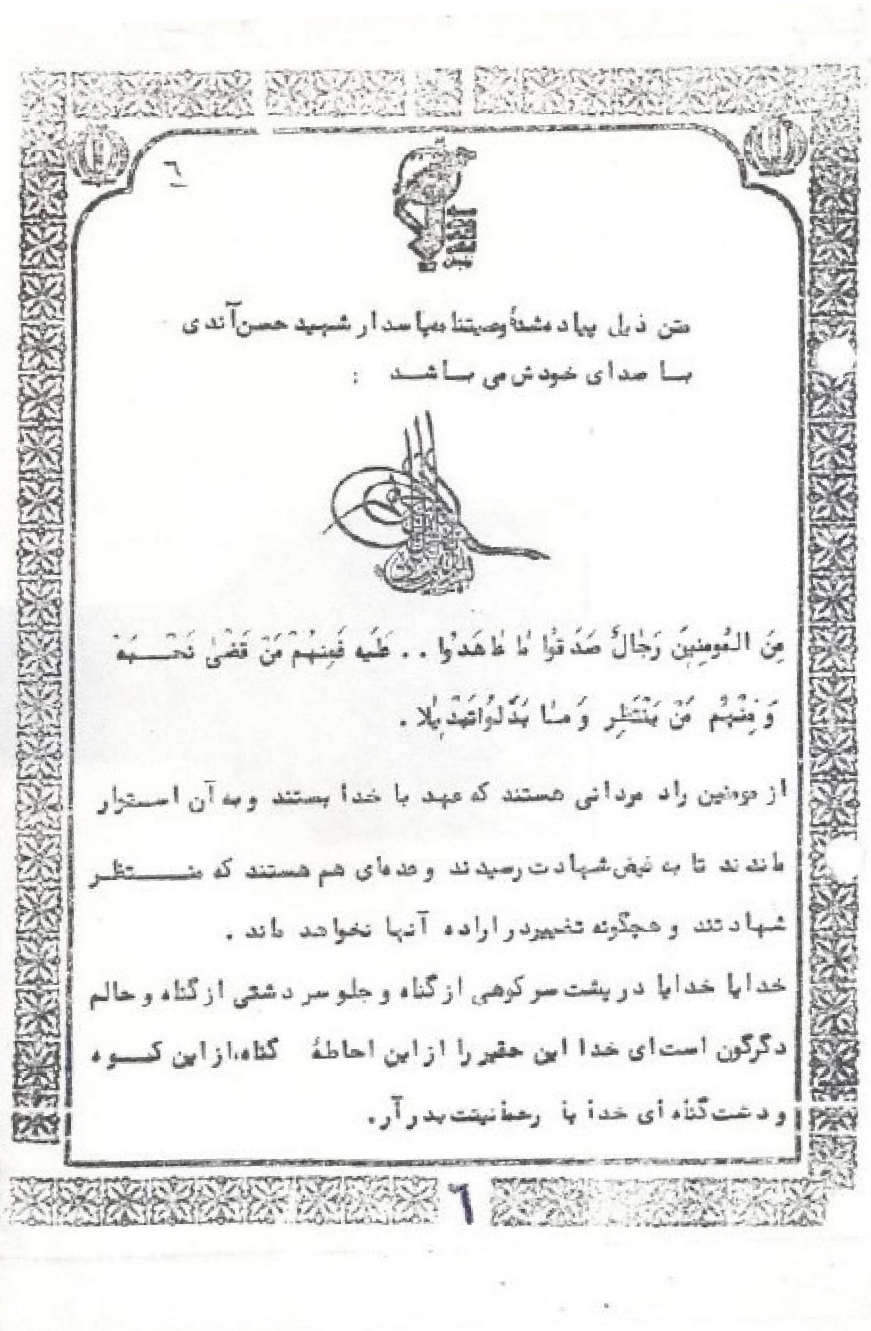 ٦
متن ذیل پیاده شدهٔ وصیتنامه پاسدار شهید حسن آندی
با صدای خودش می باشد :
مِنَ المُومِنینَ رَجالٌ صَدَقُوا مٰا عٰاهَدُوا .. عَلَیه فَمِنهُمْ مَنْ قَضیٰ نَحْبَهُ
وَ مِنْهُم مَنْ یَنْتَظِر وَ مٰا بَدَّلُواتَبْدیلا .
از مومنین راد مردانی هستند که عهد با خدا بستند و به آن استوار
ماندند تا به فیض شهادت رسیدند و عده‌ای هم هستند که منتظر
شهادتند و هیچگونه تغییر در اراده آنها نخواهد ماند .
خدایا خدایا در پشت سر کوهی از گناه و جلو سر دشتی از گناه و حالم
دگرگون است ای خدا این حقیر را از این احاطهٔ گناه، از این کوه
و دشت گناه ای خدا با رحمانیتت بدر آر.
٦